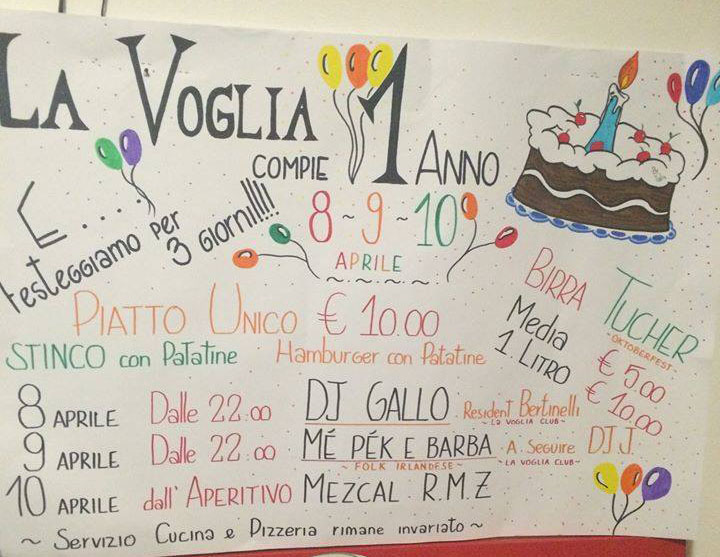 LA VOGLIA
COMPIE 1 ANNO
E.....
Festeggiamo per
3 GIORNI!!!!
8 ~ 9 ~ 10
APRILE
PIATTO UNICO € 10.00
STINCO con Patatine Hamburger con Patatine
BIRRA TUCHER
~OKTOBERFEST~
Media € 5.00
1 LITRO € 10.00
8 APRILE Dalle 22:00 DJ GALLO Resident Bertinelli
~LA VOGLIA CLUB~
9 APRILE Dalle 22:00 MÉ PÉK E BARBA A Seguire DJ J.
~ FOLK IRLANDESE ~ ~LA VOGLIA CLUB~
10 APRILE dall' APERITIVO MEZCAL R.M.Z
~ Servizio Cucina e Pizzeria rimane invariato ~